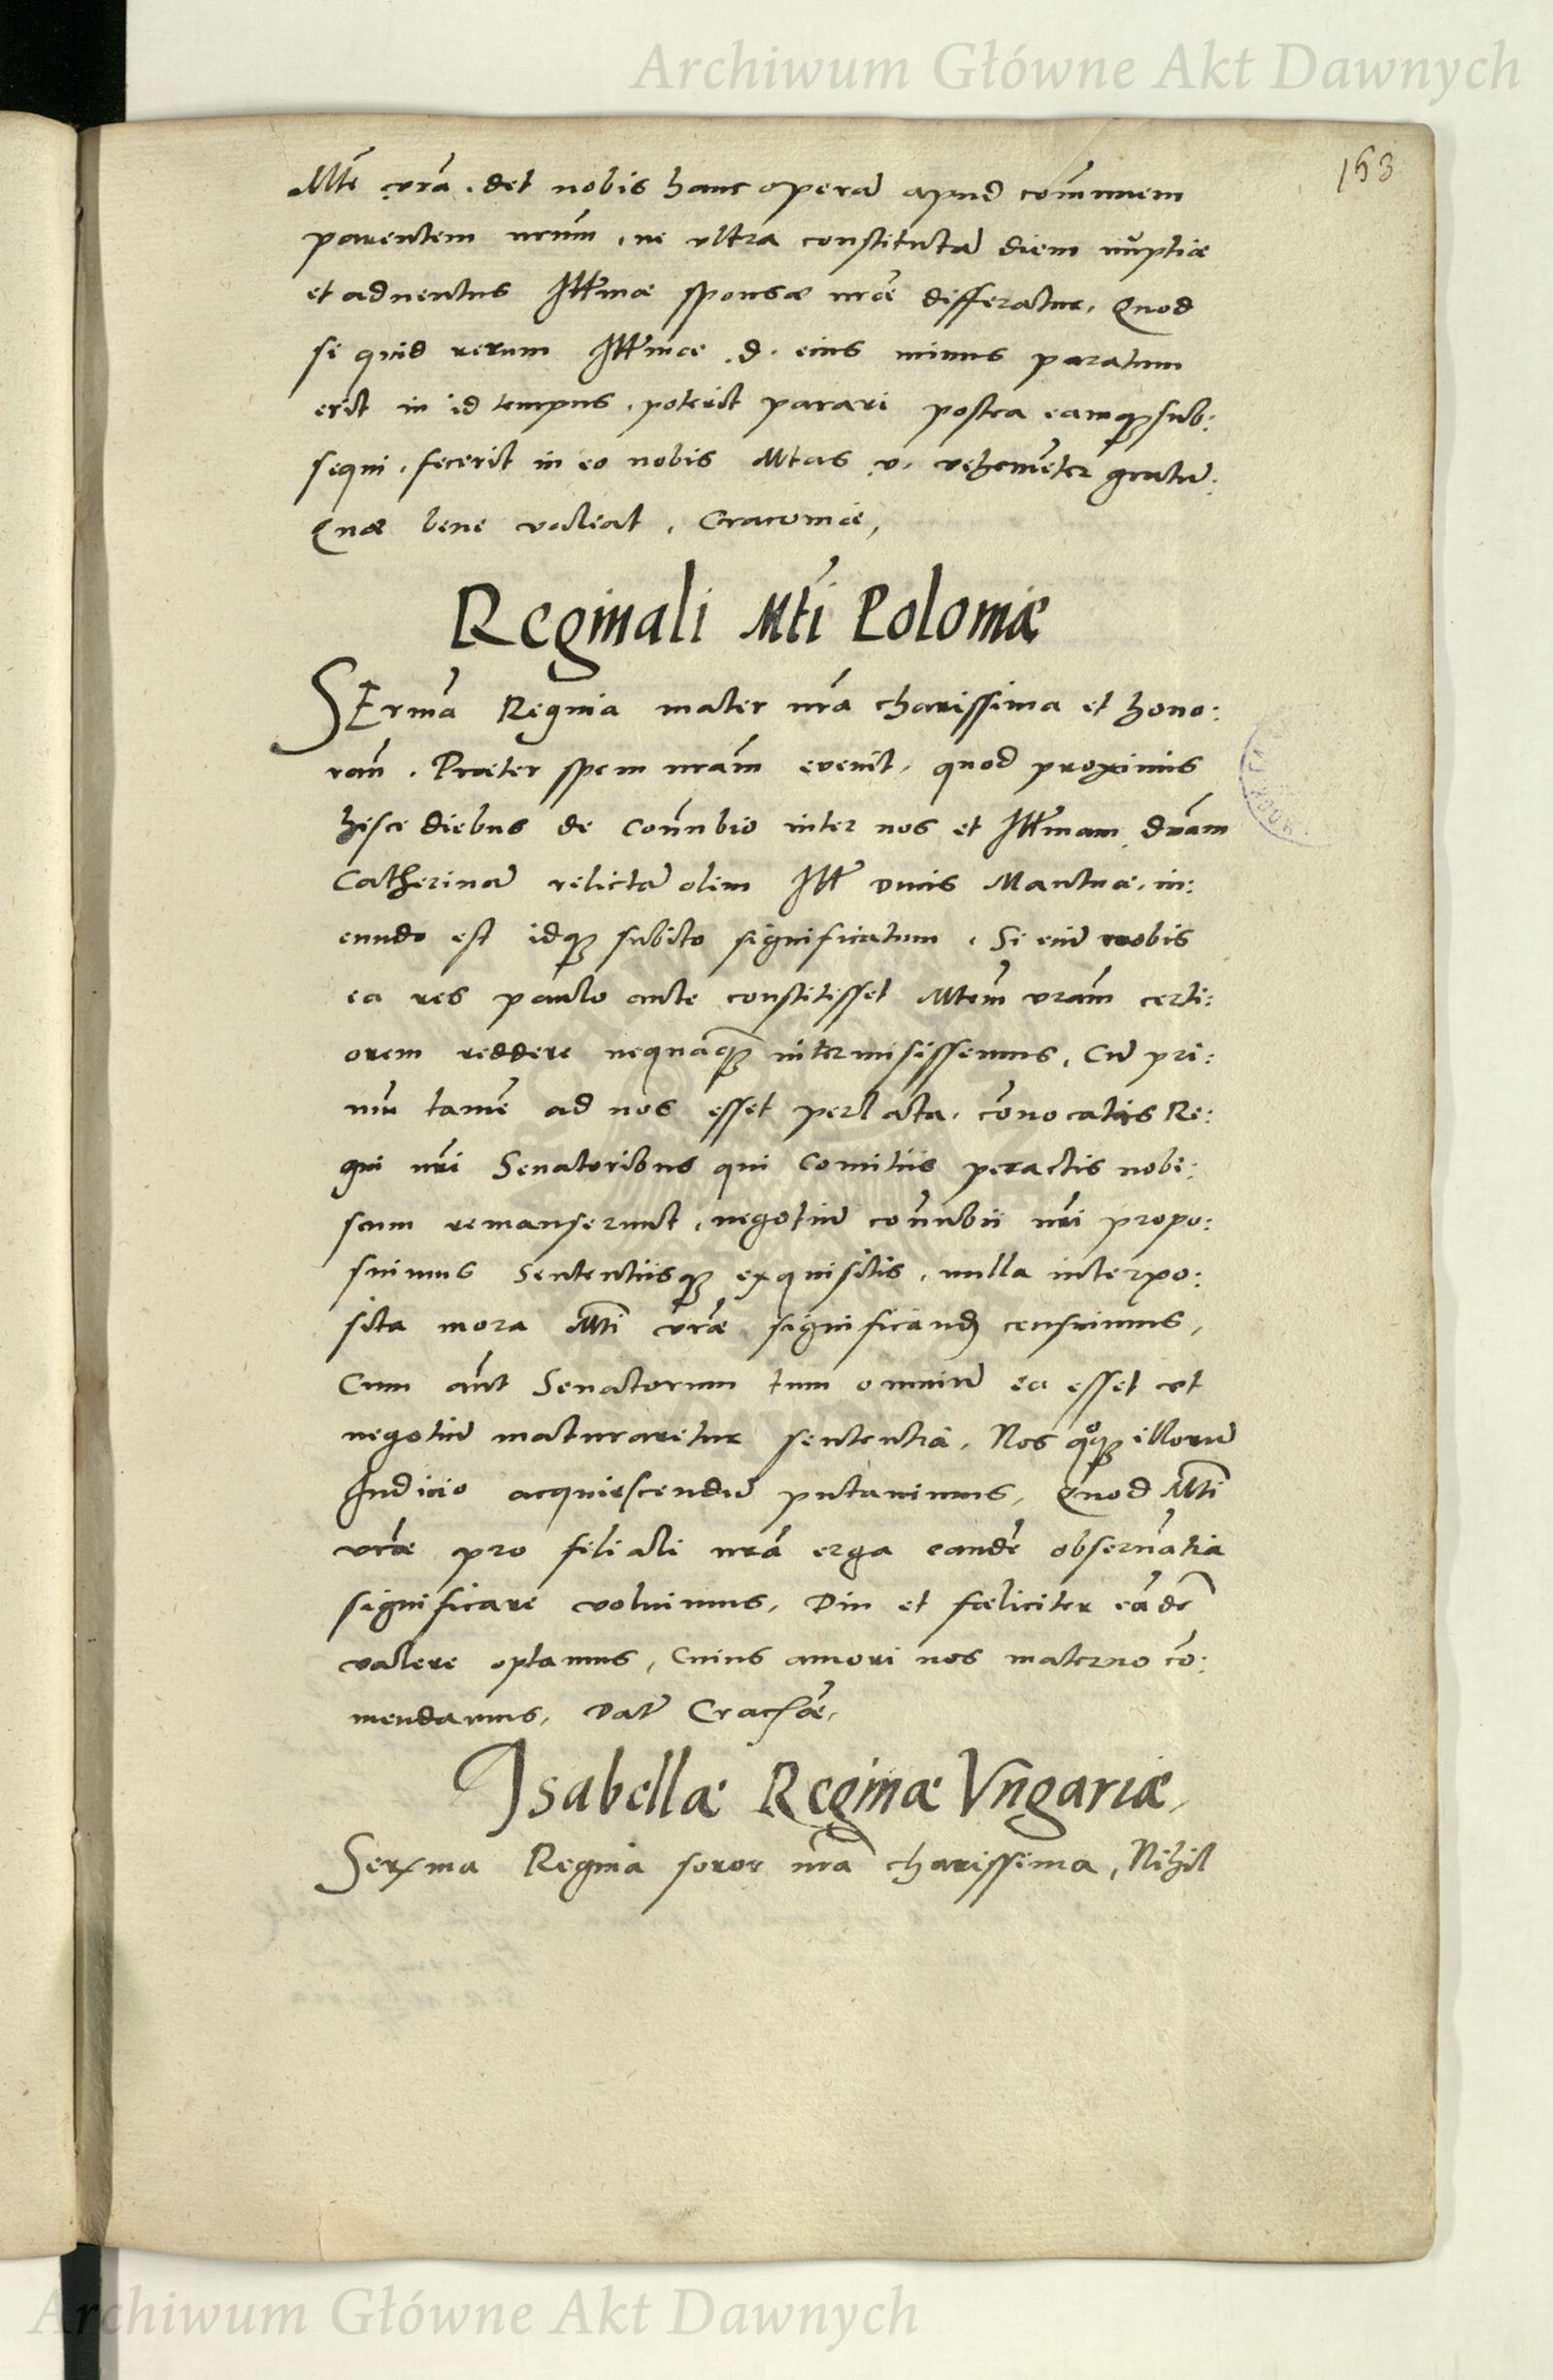 Archiwum Główne Akt Dawnych
153
Mtē vrā. det nobis hanc operā apud com̄unem
parentem nr̄um, ne vltra constitutā diem nuptiæ
et aduentus Illr̄mæ sponsæ nr̄æ differatur. Quod
si quid rerum Illr̄mæ .d. eius minus paratum
erit in id tempus, poterit parari postea eamq̧ sub:
sequi, fecerit in eo nobis Mtas v. vehemēter gratū:
Quæ bene valeat, Cracouiæ,
Reginali Mti Poloniæ
SErmā Regina mater nrā charissima et hono:
ran̄. Præter spem nrām evenit, quod proximis
hisce diebus de Con̄ubio inter nos et Illr̄mam dnām
Catherinā relictā olim Illr̄ Ducis Mantuæ, in:
eundo est idq̧ subito significatum, Si enī nobis
ea res paulo ante constitisset Mtem̄ vrām certi:
orem reddere nequāq̧ intermisissemus, Cū pri:
mū tamē ad nos esset perlata, cōnocatis Re:
gni nr̄i Senatoribus qui Comitiis peractis nobi:
scum remanserunt, negotiū con̄ubii nr̄i propo:
suimus Sententiisq̧ exquisitis, nulla interpo:
sita mora Mti vrǣ significand̄ censuimus,
Cum aūt Senatorum tum omniū ea esset vt
negotiū maturaretur sententia, Nos qͦq̧ illorū
Iudicio acquiescendū putauimus, Quod Mti
vrǣ pro filiali nrā erga eandē obseruātia
significare voluimus, Diu et fæliciter eādē
valere optamus, Cuius amori nos materno cō:
mendamus, Dat̄ Crac̄æ,
Isabellæ Reginæ Vngariæ,
Serx̄ma Regina soror nrā charissima, Nihil
Archiwum Główne Akt Dawnych